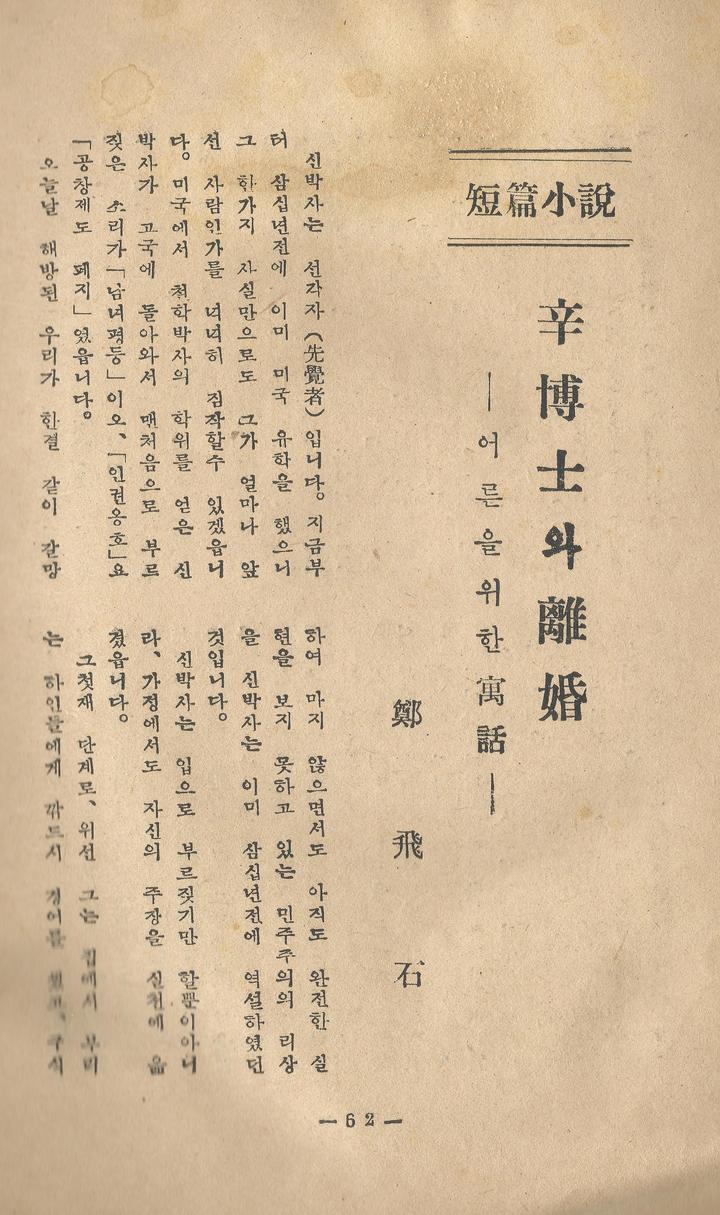 短篇小說
辛博士와離婚
―어른을위한寓話―
鄭飛石
신박사는 선각자(先覺者)입니다。지금부
터 삼십년전에 이미 미국 유학을 했으니
그 한가지 사실만으로도 그가 얼마나 앞
선 사람인가를 넉넉히 짐작할수 있겠읍니
다。미국에서 철학박사의 학위를 얻은 신
박사가 고국에 돌아와서 맨처음으로 부르
짖은 소리가「남녀평등」이오、「인권옹호」요
「공창제도 폐지」였읍니다。
오늘날 해방된 우리가 한결 같이 갈망
하여 마지 않으면서도 아직도 완전한 실
현을 보지 못하고 있는 민주주의의 리상
을 신박사는 이미 삼십년전에 역설하였던
것입니다。
신박사는 입으로 부르짖기만 할뿐이아니
라、가정에서도 자신의 주장을 실천에 옮
겼읍니다。
그첫재 단계로、위선 그는 집에서 부리
는 하인들에게 깎드시 경어를 쓰고、구식
―62―